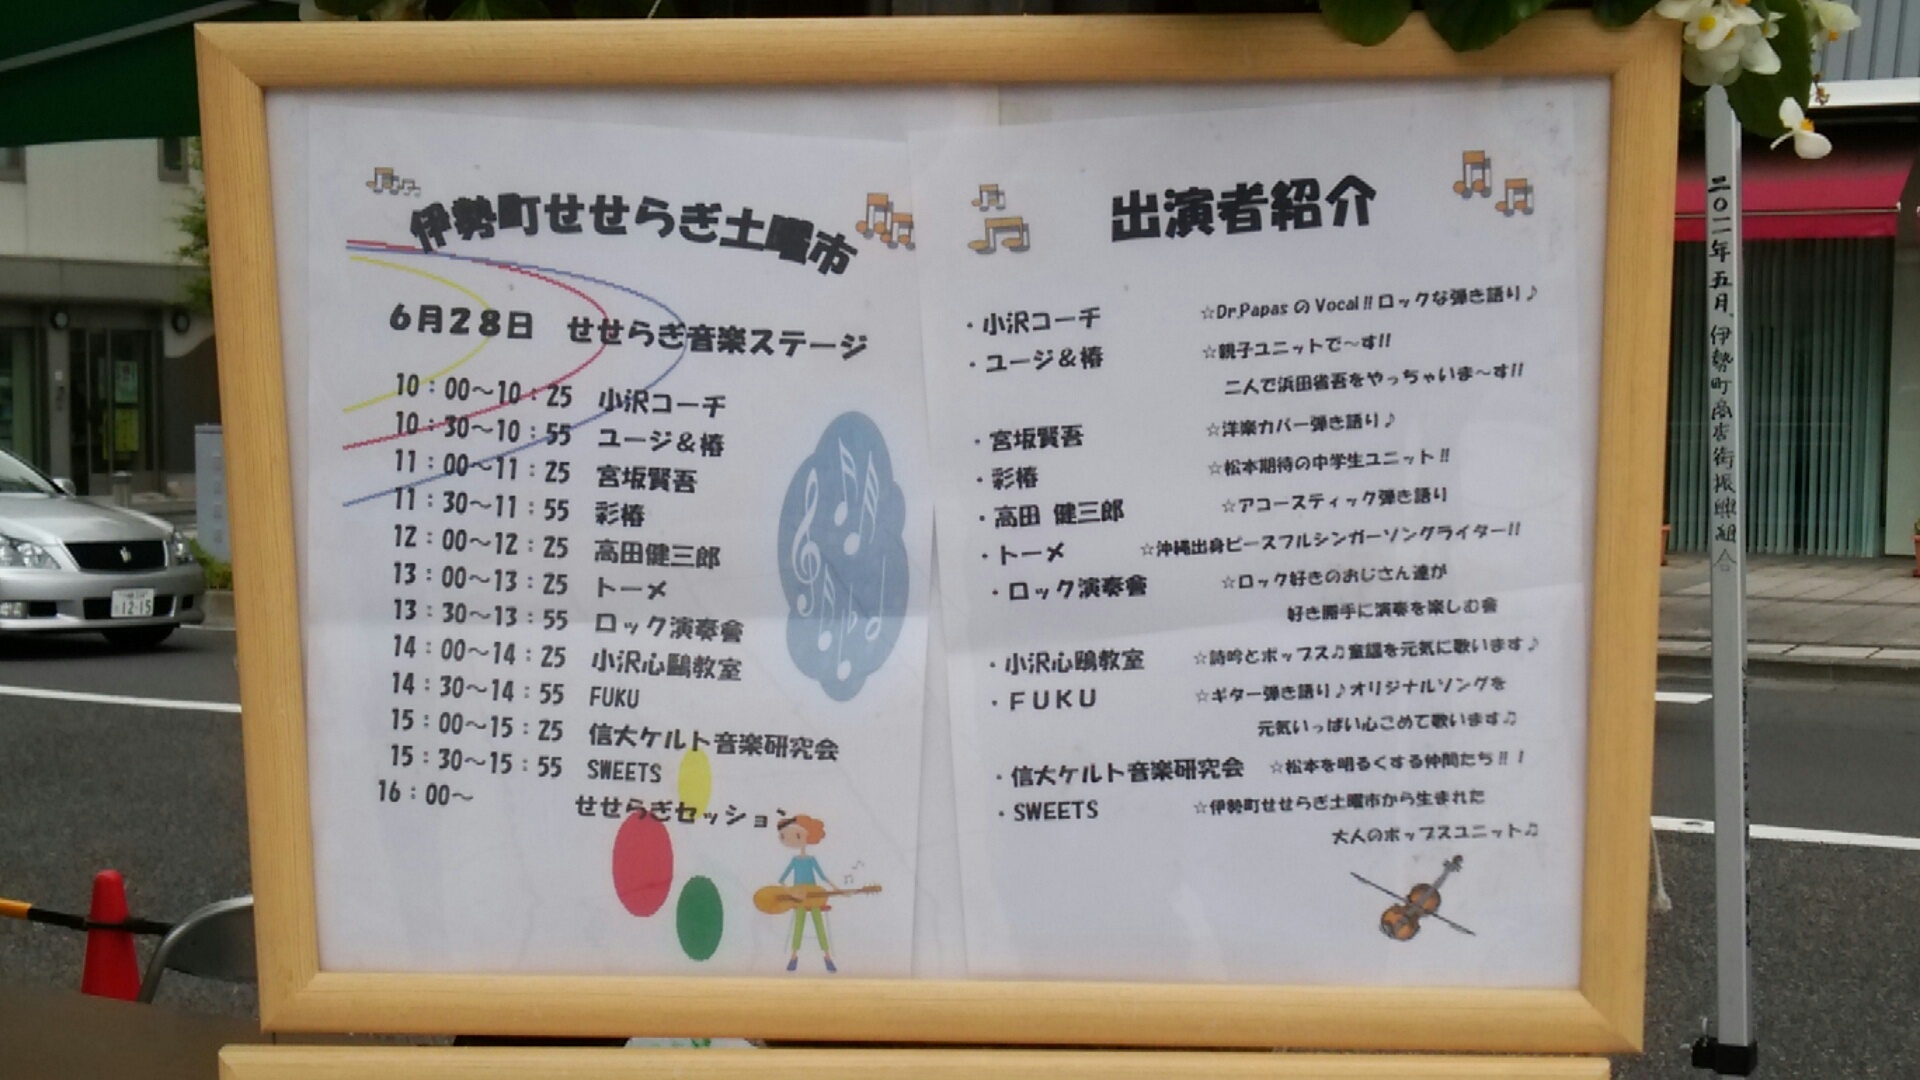 伊勢町せせらぎ土曜市
6月28日 せせらぎ音楽ステージ
10：00～10：25 小沢コーチ
10：30～10：55 ユージ＆椿
11：00～11：25 宮坂賢吾
11：30～11：55 彩椿
12：00～12：25 高田健三郎
13：00～13：25 トーメ
13：30～13：55 ロック演奏會
14：00～14：25 小沢心鷗教室
14：30～14：55 FUKU
15：00～15：25 信大ケルト音楽研究会
15：30～15：55 SWEETS
16：00～ せせらぎセッション
出演者紹介
・小沢コーチ ☆Dr.PapasのVocal!!ロックな弾き語り♪
・ユージ＆椿 ☆親子ユニットで～す!!
二人で浜田省吾をやっちゃいま～す!!
・宮坂賢吾 ☆洋楽カバー弾き語り♪
・彩椿 ☆松本期待の中学生ユニット!!
・高田 健三郎 ☆アコースティック弾き語り
・トーメ ☆沖縄出身ピースフルシンガーソングライター!!
・ロック演奏會 ☆ロック好きのおじさん達が
好き勝手に演奏を楽しむ會
・小沢心鷗教室 ☆詩吟とポップス♫童謡を元気に歌います♪
・ＦＵＫＵ ☆ギター弾き語り♪オリジナルソングを
元気いっぱい心こめて歌います♫
・信大ケルト音楽研究会 ☆松本を明るくする仲間たち!!！
・SWEETS ☆伊勢町せせらぎ土曜市から生まれた
大人のポップスユニット♫
二〇一一年五月 伊勢町商店街振興組合
12-15